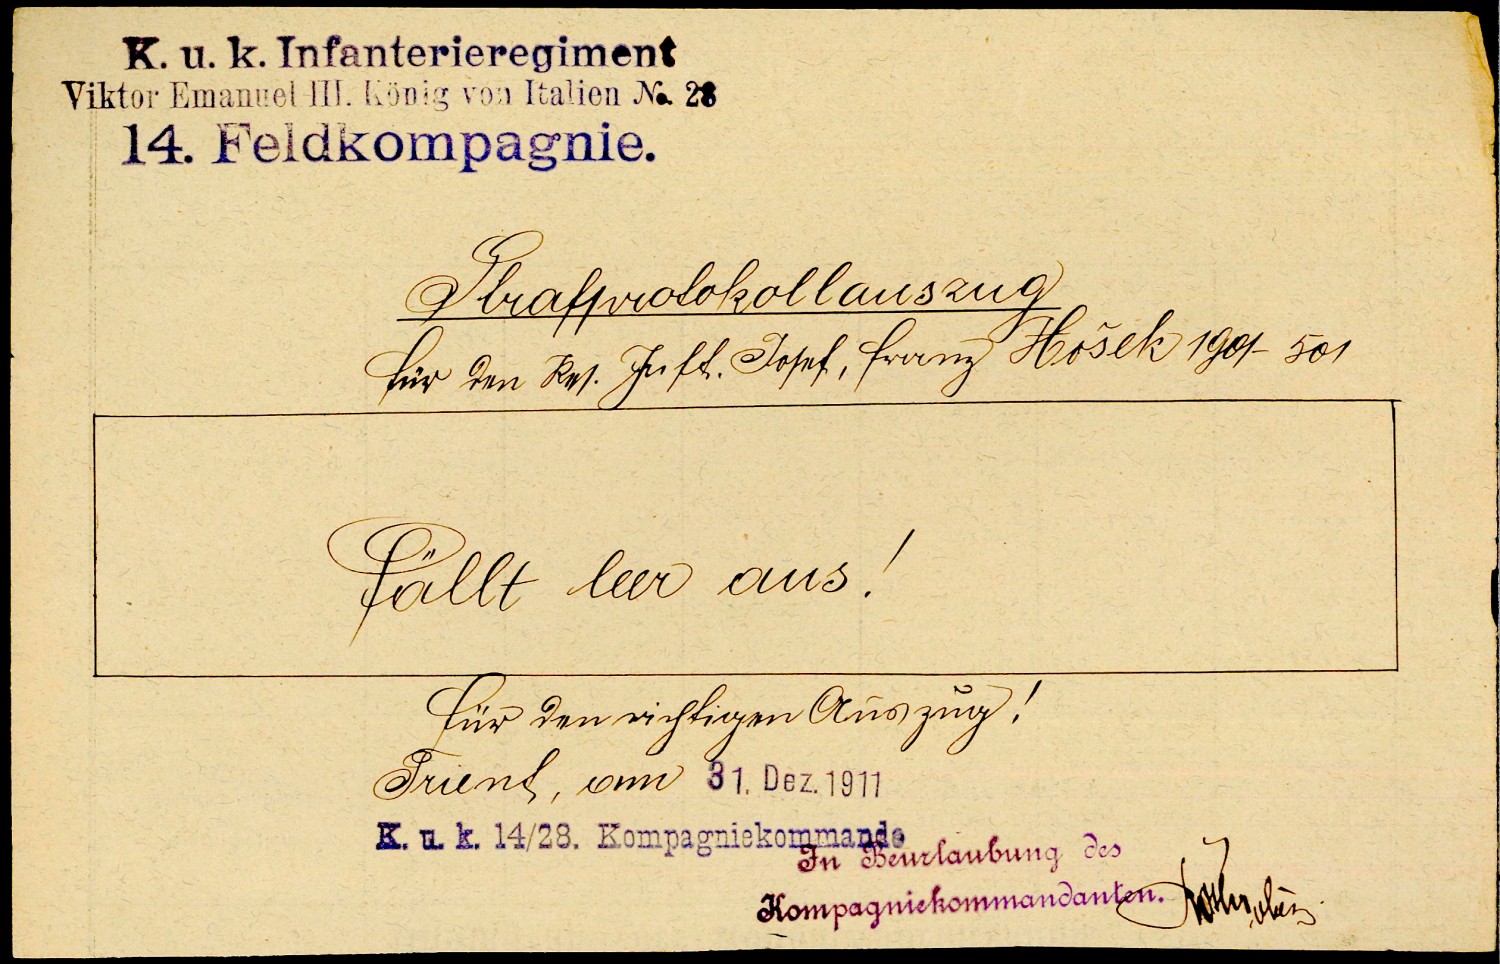 K. u. k. Infanterieregiment
Viktor Emanuel III. König von Italien No. 28
14. Feldkompagnie.
Strafprotokollauszug
für den Res. Inft. Josef, Franz Hošek 1901 501
Fällt leer aus!
Für den richtigen Auszug!
Trient, am 31. Dez. 1911
K. u. k. 14/28. Kompagniekommando
In Beurlaubung des
Kompagniekommandanten.